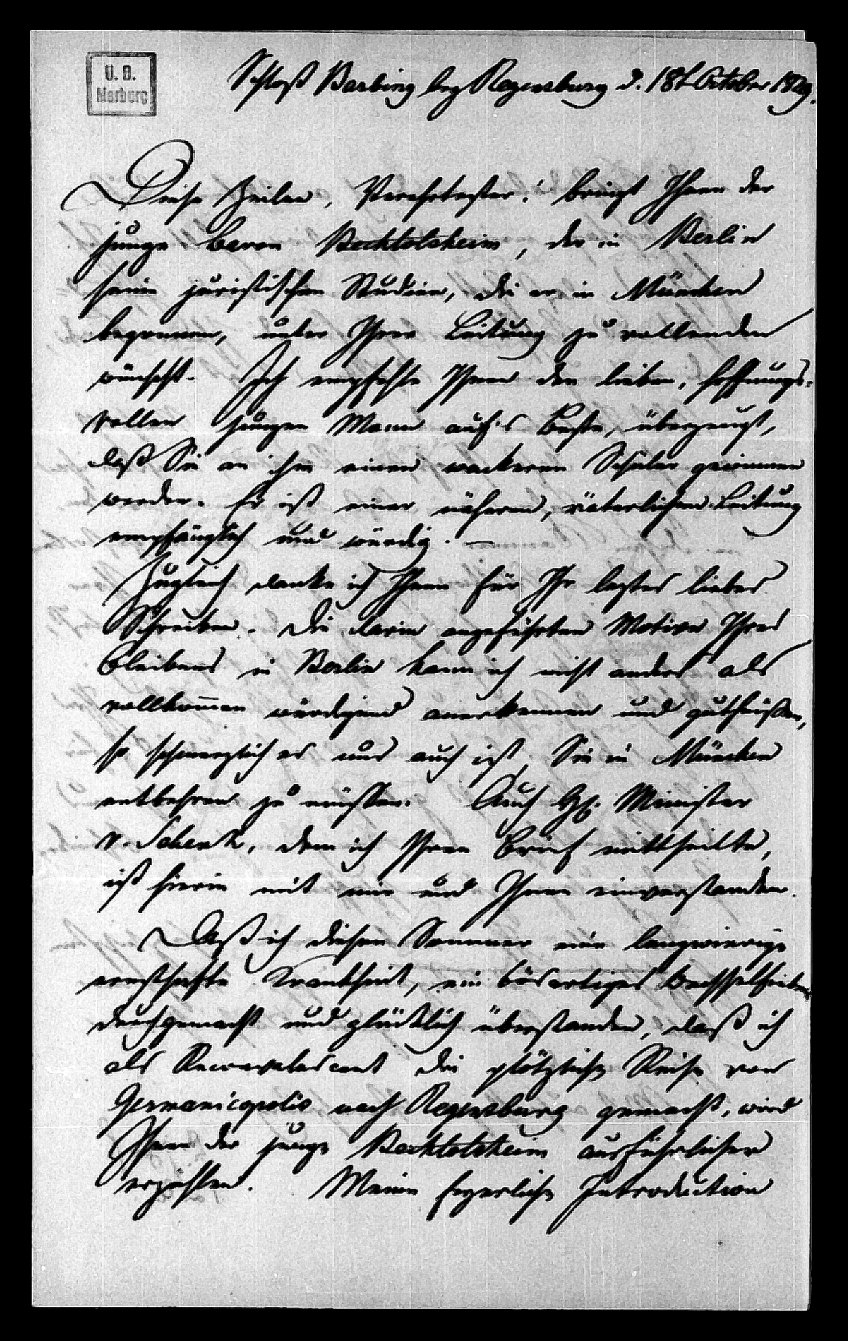 U. B.
Marburg
Schloß Barbing bey Regensburg d. 18t October 1829.
Diese Zeilen, Verehrtester! bringt Ihnen der
junge Baron Bechtolsheim, der in Berlin
seine juristischen Studien, die er in München
begonnen, unter Ihrer Leitung zu vollenden
wünscht. Ich empfehle Ihnen den lieben, hoffnungs-
vollen jungen Mann auf's Beste, überzeugt,
daß Sie an ihm einen wackeren Schüler gewinnen
werden. Er ist einer nähern, väterlichen Leitung
empfänglich und würdig. —
Zugleich danke ich Ihnen für Ihr letztes liebes
Schreiben. Die darin angeführten Motive Ihres
Bleibens in Berlin kann ich nicht anders als
vollkommen würdigend anerkennen und gutheißen,
so schmerzlich es uns auch ist, Sie in München
entbehren zu müssen. Auch H. Minister
v. Schenk, dem ich Ihren Brief mittheilte,
ist hierin mit mir und Ihnen einverstanden.
Daß ich diesen Sommer eine langwierige
ernsthafte Krankheit, ein bösartiges
durchgemacht und glücklich überstanden, daß ich
als Reconvalescent die plötzliche Reise von
Germanicopolis nach Regensburg gemacht, wird
Ihnen der junge Bechtolsheim ausführlicher
erzählen. Meine feyerliche Introduction